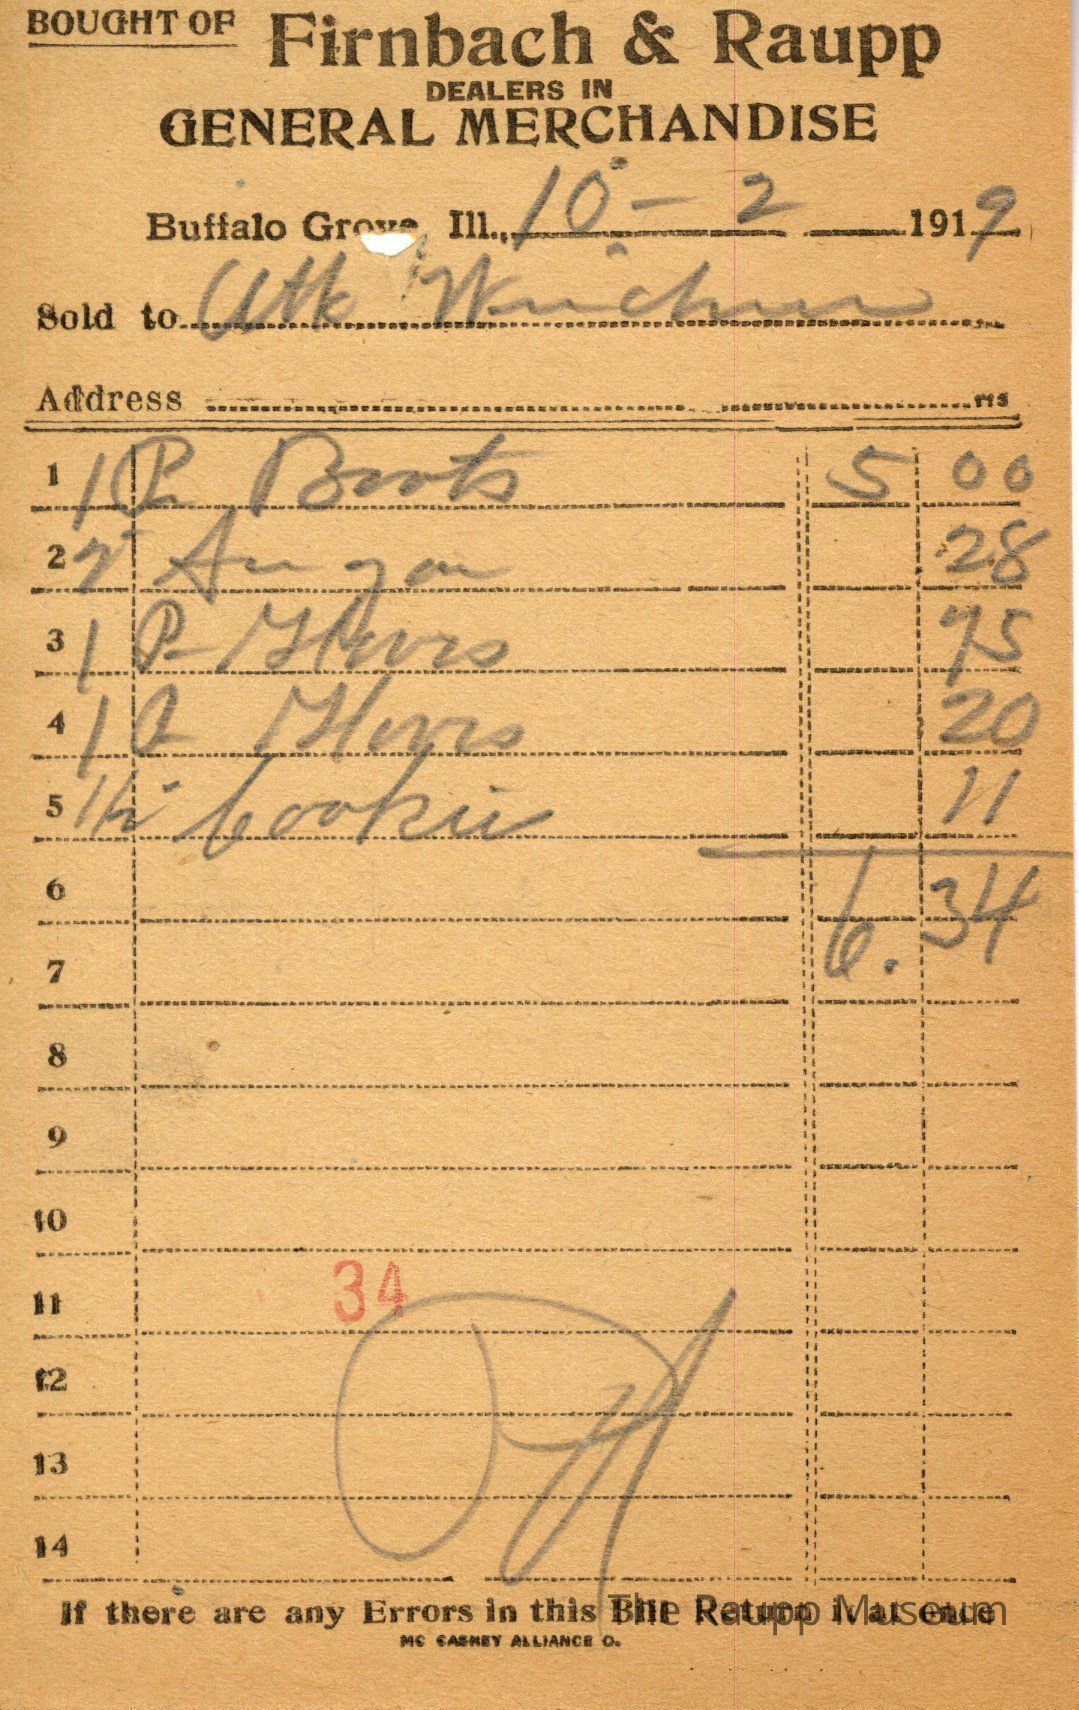 BOUGHT OF Firnbach & Raupp
DEALERS IN
GENERAL MERCHANDISE
Buffalo Grove Ill., 10-2 1919
Sold to
Address
1 1 P Boots 5 00
2 2 28
3 1 P 75
4 1 20
5 Cookie 11
6 6.34
7
8
9
10
34
11
12
13
14
If there are any Errors in this Bill Return it at once
The Raupp Museum
MC CASKEY ALLIANCE O.